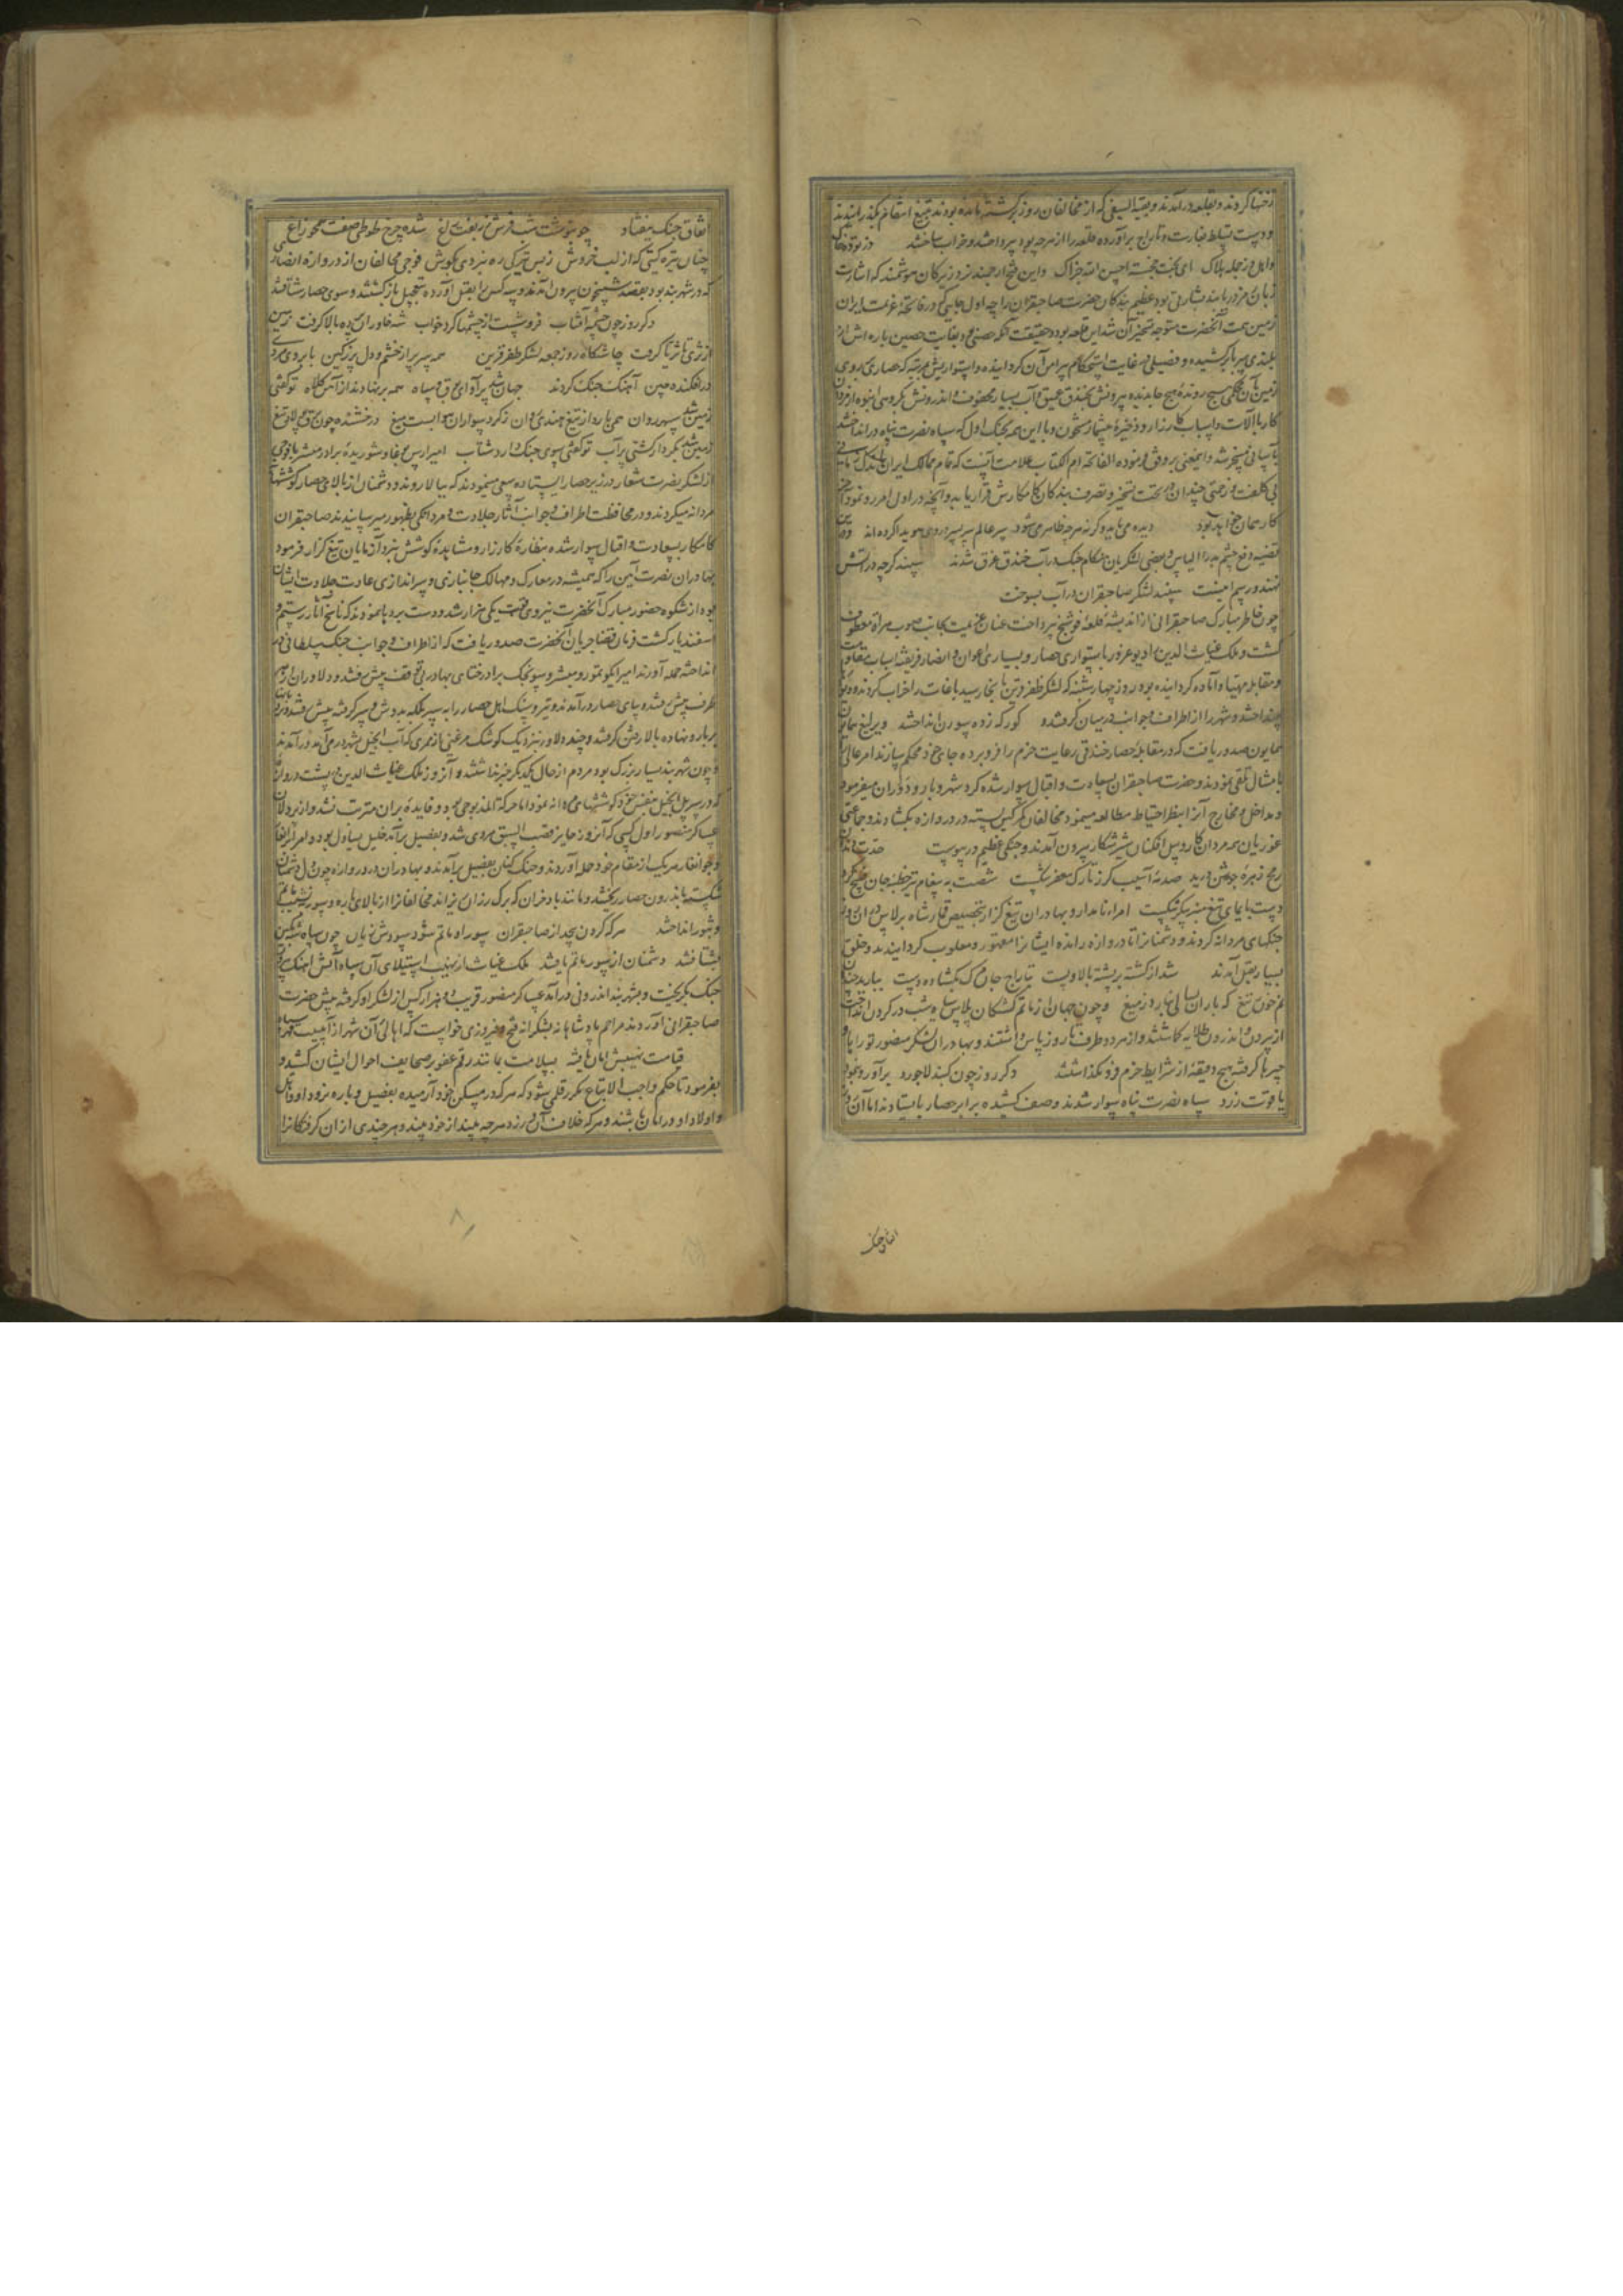 زخنها کردند و بقلعه درآمدند و بقیة السیفی که از مخالفان روز گذشته مانده بودند بتیغ انتقام بگذرانیدند
و دست تسلط بغارت و تاراج برآورده قلعه را از هرچه بود بپرداختند و خراب ساختند
و اهل در جمله هلاک ای بخت خجسته احسن الله جزاک و این فتح ارجمند نزد زیرکان هوشمند که اشارت
بود عظیم بندگان حضرت صاحبقران را چه اول جایی که در فاتحه عزیمت ایران
زمین همت آنحضرت متوجه تسخیر آن شد این قلعه بود و در حقیقت آنکه حصنی بود بغایت حصین باره اش از
بلندی بپروین کشیده و فصیلی در غایت استحکام پیرامن آن گردانیده و استواریش بمرتبه که حصاری بروی
زمین بآن محکمی هیچ رونده هیچ جا ندیده بیرونش بخندق عمیق و آب بسیار محفوف و اندرونش بگروهی انبوه از مردان
کار با آلات و اسباب کارزار و ذخیره بیشمار مشحون و با این همه بجنگ اول که سپاه نصرت پناه درانداختند
بآسانی مسخر شد و اینمعنی بر وفق فرموده الفاتحه ام الکتاب علامت آنست که تمام ممالک ایران باندک زمانی
بی کلفت و زحمتی چندان در تحت تسخیر و تصرف بندگان کامکارش قرار یابد و آنچه در اول امر رو نمود آخر
کار همان خواهد بود دیده می باید و گرنه هرچه ظاهر می شود سر عالم سر بسر در وی هویدا کرده اند
قضیه دفع چشم بد را الیاس و بعضی لشکریان هنگام جنگ در آب خندق غرق شدند سپند گرچه در آتش
نهند و رسم اینست سپند لشکر صاحبقران در آب بسوخت
چون خاطر مبارک صاحبقرانی از اندیشه قلعه فوشنج بپرداخت عنان عزیمت بجانب صوب هراة معطوف
گشت و ملک غیاث الدین را دیو غرور باستواری حصار و بسیاری اعوان و انصار فریفته اسباب مقاومت
و مقابله مهیا و آماده گردانیده بود روز چهارشنبه که لشکر ظفر قرین بانجا رسید باغات را خراب کردند و دیوارها
بینداختند و شهر را از اطراف و جوانب در میان گرفتند کورکه زده سورن انداختند و یرلیغ همان
همایون صدور یافت که در مقابله حصار خندقی رعایت حزم را فرو برده جای خود محکم سازند امرا عالی
بامتثال تلقی نمودند و حضرت صاحبقران بسعادت و اقبال سوار شده گرد شهر و بارو دوران میفرمود
و مداخل و مخارج آنرا بنظر احتیاط مطالعه مینمود مخالفان کمر کین بسته در دروازه بگشادند و جماعتی
غوریان همه مردان کار و پیل افکنان شیر شکار بیرون آمدند و جنگی عظیم در پیوست
رمح زهره جوشن درید صدمه آسیب گرز تارک مغفر شکست شصت به پیغام تیر خطبه جان فسخ کرد
دست بایمای تیغ منبر پیکر شکست امراء نامدار و بهادران تیغ گزار بتخصیص قمار شاه برلاس در آن روز
جنگهای مردانه کردند و دشمنانرا تا دروازه رانده ایشانرا مقهور و مغلوب گردانیدند و خلق
بسیار بقتل آمدند شد از کشته بر پشته بالا و پست بتاراج جان مرگ بگشاده دست ببارید چندان
نم خون ز تیغ که باران بسالی نبارد ز میغ و چون جهان از ماتم کشتگان پلاس سیاه شب در گردن انداخت
از بیرون و اندرون طلایه گماشتند و از هر دو طرف تا روز پاس داشتند و بهادران لشکر منصور تورا یا
چپرها گرفته هیچ دقیقه از شرایط حزم فرو نگذاشتند دگر روز چون گنبد لاجورد برآورد بنمود
یاقوت زرد سپاه نصرت پناه سوار شدند و صف کشیده برابر حصار بایستادند اما آن روز
اتفاق جنگ
اتفاق جنگ نیفتاد چو بنوشت شب فرش زربفت باغ شده چرخ طوطی صفت همچو زاغ
چنان تیره گیتی که از لب خروش ز بس تیرگی ره نبردی بگوش فوجی مخالفان از دروازه انصاری
که در شهر بند بود بقصد شبیخون بیرون آمدند و سه کس را بقتل آورده بتعجیل بازگشتند و سوی حصار شتافتند
دگر روز چون چشمه آفتاب فرو شست از چشمها گرد خواب شه خاوران دیده بالا گرفت زمین
از ثری تا ثریا گرفت چاشتگاه روز جمعه لشکر ظفر قرین همه سر پر از خشم و دل پر ز کین بابروی مردی
درافکنده چین آهنگ جنگ کردند جهان شد پر آوای بوق و سپاه همه بر نهادند از آهن کلاه تو گفتی
زمین شد سپهر روان همی بارد از تیغ هندی روان ز گرد سواران هوا بست میغ درخشنده چون برق پولاد تیغ
زمین شد بکردار کشتی بر آب تو گفتی سوی جنگ دارد شتاب
از لشکر نصرت شعار در زیر حصار ایستاده سعی مینمودند که ببالا روند و دشمنان از بالای حصار کوششها
مردانه میکردند و در محافظت اطراف و جوانب آثار جلادت و مردانگی بظهور میرسانیدند صاحبقران
کامکار بسعادت و اقبال سوار شده بنظاره کارزار و مشاهده کوشش نبردآزمایان تیغ گزار فرمود
بهادران نصرت آیین را که همیشه در معارک و مهالک جانبازی و سراندازی عادت جلادت ایشان
بود از شکوه حضور مبارک آنحضرت نیروی قوت یکی هزار شد و دست بردها نمودند که ناسخ آثار رستم و
اسفندیار گشت فرمان قضا جریان آنحضرت صدور یافت که از اطراف و جوانب جنگ سلطانی در
انداخته حمله آورند امیر ایکوتمور و مبشر و سونجک برادر ختای بهادر بی توقف پیش رفتند و دلاوران از هر
طرف پیش رفتند و بپای حصار درآمدند و تیر و سنگ اهل حصار را به سپر بلکه بدوش و سر گرفته پیش رفتند و نردبانها
بر بارو نهاده بالا رفتن گرفتند و چند دلاور نزدیک کوشک مرغنی از ممری که آب انجیل بشهر در می آمد درآمدند
و چون شهر بند بسیار بزرگ بود مردم از حال یکدیگر خبر نداشتند و آنروز ملک غیاث الدین در پشت دروازه
که در سر پل انجیل بنفس خود کوششهای مردانه نمود اما حرکة المذبوحی بود و فایده بر آن مترتب نشد و از دلاوران
عساکر منصور اول کسی که آنروز حایز قصب السبق مردی شد و بفصیل برآمد خلیل یساول بود و امراء برانغار
و جوانغار هر یک از مقام خود حمله آوردند و جنگ کنان بفصیل برآمدند و بهادران در دروازه چون دل دشمنان
شکسته باندرون حصار ریختند و مانند باد خزان که برگ رزان ریزاند مخالفانرا از بالای باره و سور بنشیب
و ثبور انداختند هر که گردن بپیچد از صاحبقران سور او ماتم شود سودش زیان چون سپاه
بشتافتند دشمنان از سور ماتم یافتند ملک غیاث از نهیب استیلای آن سپاه آتش آهنگ
جنگ بگریخت و بشهر بند اندرونی درآمد عساکر منصور قریب دو هزار کس از لشکر او گرفته پیش حضرت
صاحبقرانی آوردند مراحم پادشاهانه بشکرانه فتح و فیروزی خواست که اهالی آن شهر از آسیب قهر سپاه
قیامت نهیبش امان یافته بسلامت بمانند رقم عفو بر صحایف احوال ایشان کشید و
بفرمود تا حکم واجب الاتباع بقلم شود که هر که در مسکن خود آرمیده بفصیل و باره نرود او و اهل
و اولاد او در امان باشند و هر که خلاف آن ورزد هرچه بیند از خود بیند و هر چندی از آن گرفتگانرا